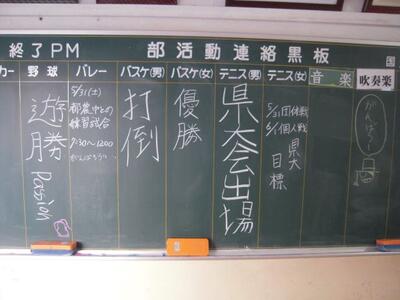 終了PM 部活動連絡黒板
カー 野球 バレー バスケ(男) バスケ(女) テニス(男) テニス(女) 音楽 吹奏楽
遊勝
Passion
5/31(土)
都農中との
練習試合
9:30〜12:00
がんばろう
打倒
優勝
県大会出場
5/31団体戦
6/1個人戦
県大
目標
がんば〜!